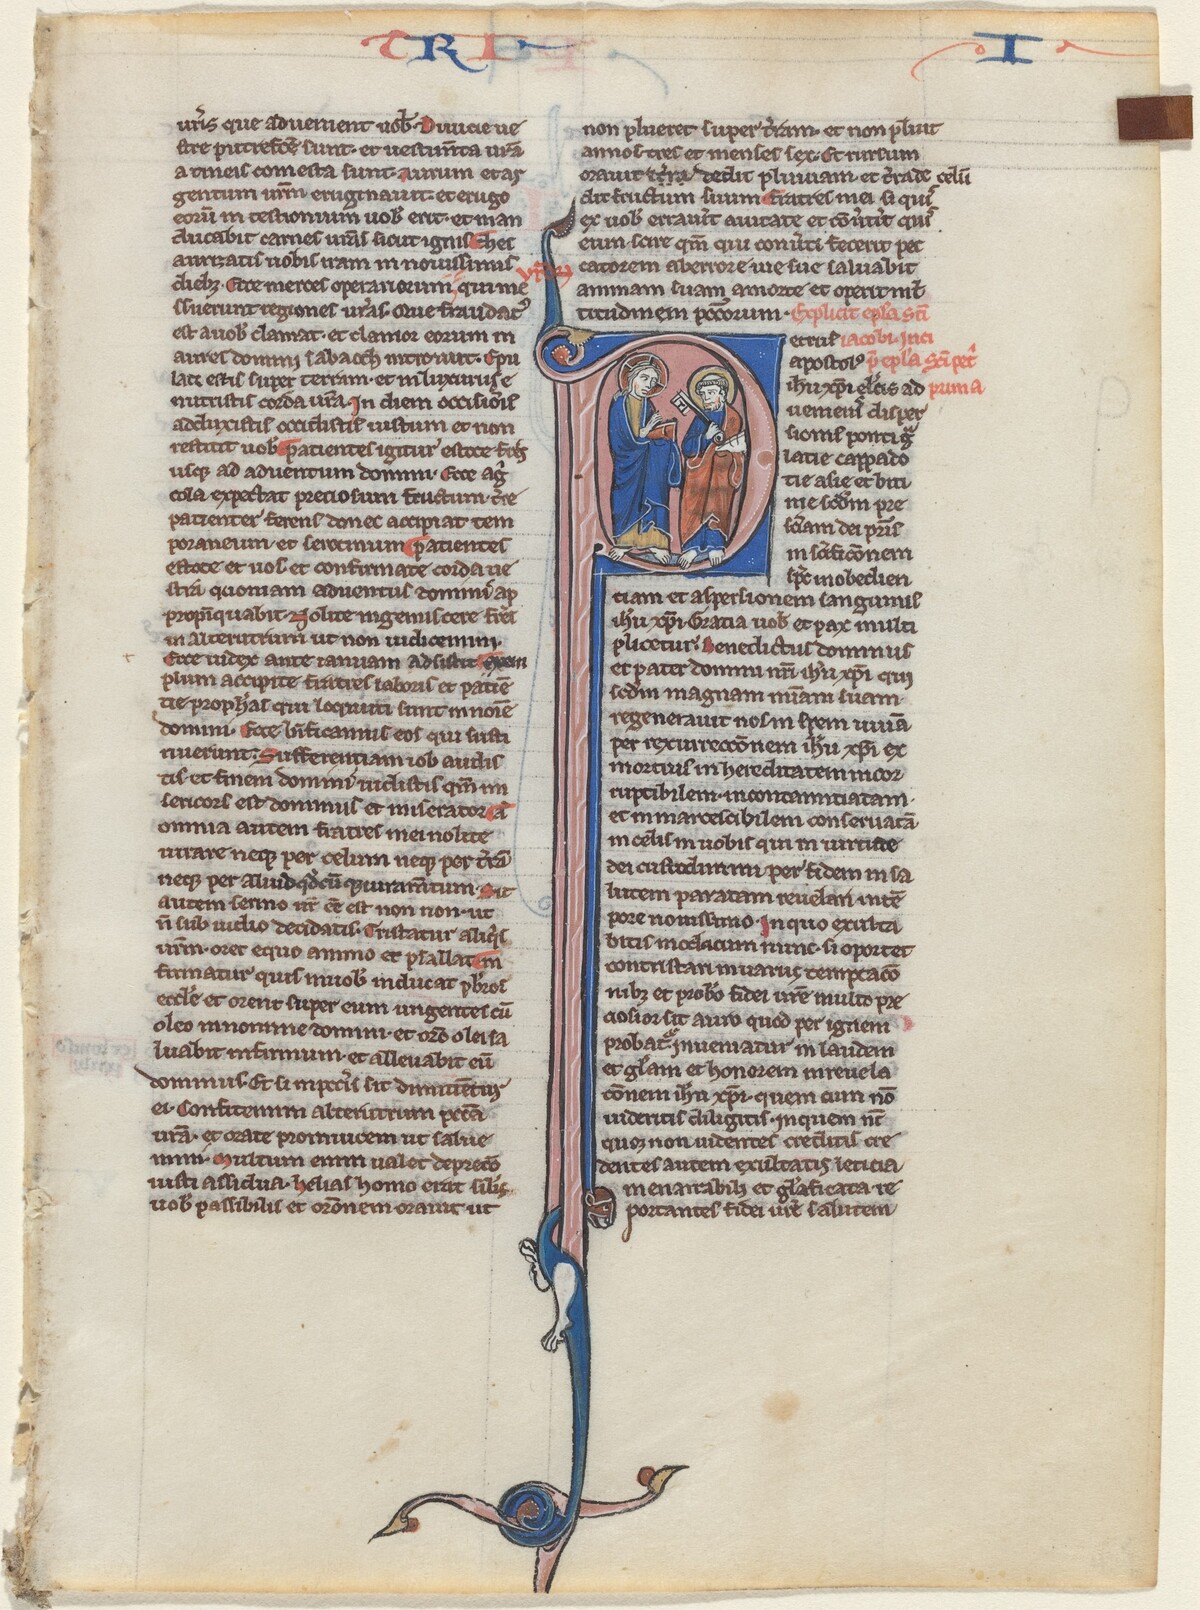 TRI I
uris que aduenient uob. Diuicie ue
stre putrefce sunt. et uestimta ura
a tineis comesta sunt. Aurum et ar
gentum urm eruginauit. et erugo
eoru in testionium uob erit. et man
ducabit carnes uras sicut ignis. Thes
aurizatis uobis iram in nouissimis
dieb; Ecce merces operariorum qui me
ssuerunt regiones uras. Que fraudat
est a uob clamat. et clamor eorum in
aures domini sabaoth introiuit. Epu
lati estis super terram. et in luxuriis e
nutristis corda ura. In diem occisiois
adduxistis occidistis iustum et non
restitit uob. Patientes igitur estote frs
usq; ad aduentum domini. Ecce ag
cola expectat preciosum fructum tre
patienter ferens donec accipiat tem
poraneum. et serotinum. Patientes
estote et uos. et confirmate corda ue
stra quoniam aduentus domini ap
propiquabit. Nolite ingemiscere fres
in alterutrum ut non iudicemini.
Ecce iudex ante ianuam adsistit. Exem
plum accipite fratres laboris et patie
tie prophas qui locuuti sunt in noie
domini. Ecce btificamus eos qui susti
nuerunt. Sufferentiam iob audis
tis. et finem domini uidistis qm mi
sericors est dominus et miserator. A
omnia autem fratres mei nolite
iurare neq; per celum neq; per tra
neq; per aliud qdcu q; iuramtum. Sit
autem sermo ur e est non non. ut
n sub iudio decidatis. Tristatur aliqis
urm. oret equo animo et psallat. In
firmatur quis in uob inducat pbros
eccle et orent super eum ungentes cu
oleo in nomine domini. et oro olei sa
luabit infirmum. et alleuabit eu
dominus. Et si in pecis sit dimittetur
ei. Confitemini alterutrum pcca
ura. et orate pro inuicem ut salue
mini. Multum enim ualet depreco
iusti assidua. helias homo erat silis
uob passibilis et oronem orauit ut
non plueret super tram. et non pluit
annos tres et menses sex. Et rursum
orauit dedit pluuiam et tra de celu
dit fructum suum. Fratres mei si qui
ex uob errauit a uitate et conutit qui
eum scire qm qui conuti fecerit pec
catorem ab errore uie sue saluabit
animam suam a morte et operit mlt
titudinem pccorum. Explicit epla sci
iacobi. Inci
p epla sci pet
prima
etrus
apostol
ihu xpi elcis ad
uenieni disper
sionis ponti g
latie cappado
tie asie et biti
nie scdm pre
sciam dei pris
in scificonem
spc in obedien
tiam et aspersionem sanguinis
ihu xpi. Gratia uob et pax multi
plicetur. Benedictus dominus
et pater domini nri ihu xpi qui
scdm magnam miam suam
regenerauit nos in spem uiua
per rexurreccionem ihu xpi ex
mortuis in hereditatem incor
ruptibilem. incontamitiatam.
et inmarcescibilem conseruata
in celis in uobis qui in uirtute
dei custodimini per fidem in sa
lutem paratam reuelari in te
pore nouissimo. In quo exulta
bitis modicum nunc. si oportet
contristari in uariis temptaco
nib; et probo fidei ure multo pre
ciosior sit auro quod per ignem
probat. inueniatur in laudem
et glam et honorem in reuela
cionem ihu xpi. quem cum no
uideritis diligitis. in quem nc
quoq; non uidentes creditis cre
dentes autem exultatis leticia
inenarrabili et glificata re
portantes fidei ure salutem